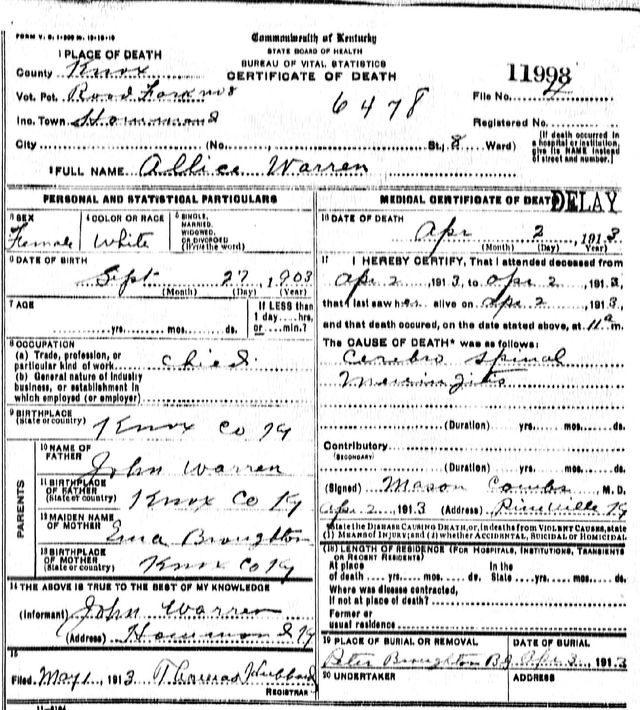 FORM V. S. 1-200 M. 10-19-10
Commonwealth of Kentucky
STATE BOARD OF HEALTH
BUREAU OF VITAL STATISTICS
CERTIFICATE OF DEATH
1 PLACE OF DEATH
County Knox
Vot. Pct. Road Fork No 8
Inc. Town Hammond
City No. St.; 8 Ward)
11998
File No. 2
6478
Registered No.
[If death occurred in a hospital or institution, give its NAME instead of street and number.]
2 FULL NAME Allice Warren
PERSONAL AND STATISTICAL PARTICULARS
3 SEX Female
4 COLOR OR RACE White
5 SINGLE, MARRIED, WIDOWED, OR DIVORCED (Write the word)
6 DATE OF BIRTH
Sept 27, 1903
(Month) (Day) (Year)
7 AGE
yrs. mos. ds.
If LESS than 1 day ... hrs. or ... min.?
8 OCCUPATION
(a) Trade, profession, or particular kind of work Chied
(b) General nature of industry business, or establishment in which employed (or employer)
9 BIRTHPLACE
(State or country) Knox Co Ky
PARENTS
10 NAME OF FATHER John Warren
11 BIRTHPLACE OF FATHER (State or country) Knox Co Ky
12 MAIDEN NAME OF MOTHER Broughton
13 BIRTHPLACE OF MOTHER (State or country) Knox Co Ky
14 THE ABOVE IS TRUE TO THE BEST OF MY KNOWLEDGE
(Informant) John Warren
(Address) Hammond Ky
15
Filed May 1, 1913 Thomas Hubbard
REGISTRAR
MEDICAL CERTIFICATE OF DEATH
DELAY
16 DATE OF DEATH
Apr 2, 1913
(Month) (Day) (Year)
17 I HEREBY CERTIFY, That I attended deceased from
Apr 2, 1913, to Apr 2, 1913,
that I last saw her alive on Apr 2, 1913,
and that death occured, on the date stated above, at 11 a m.
The CAUSE OF DEATH* was as follows:
Cerebro Spinal
(Duration) yrs. mos. ds.
Contributory
(SECONDARY)
(Duration) yrs. mos. ds.
(Signed) Mason Combs M. D.
Apr 2, 1913 (Address) Pineville Ky
State the DISEASE CAUSING DEATH, or, in deaths from VIOLENT CAUSES, state
(1) MEANS OF INJURY; and (2) whether ACCIDENTAL, SUICIDAL OR HOMICIDAL
(18) LENGTH OF RESIDENCE (FOR HOSPITALS, INSTITUTIONS, TRANSIENTS OR RECENT RESIDENTS)
At place of death yrs. mos. ds. In the State yrs. mos. ds.
Where was disease contracted,
If not at place of death?
Former or
usual residence
19 PLACE OF BURIAL OR REMOVAL
Peter Broughton B G
DATE OF BURIAL
Apr 3, 1913
20 UNDERTAKER
ADDRESS
11-5184